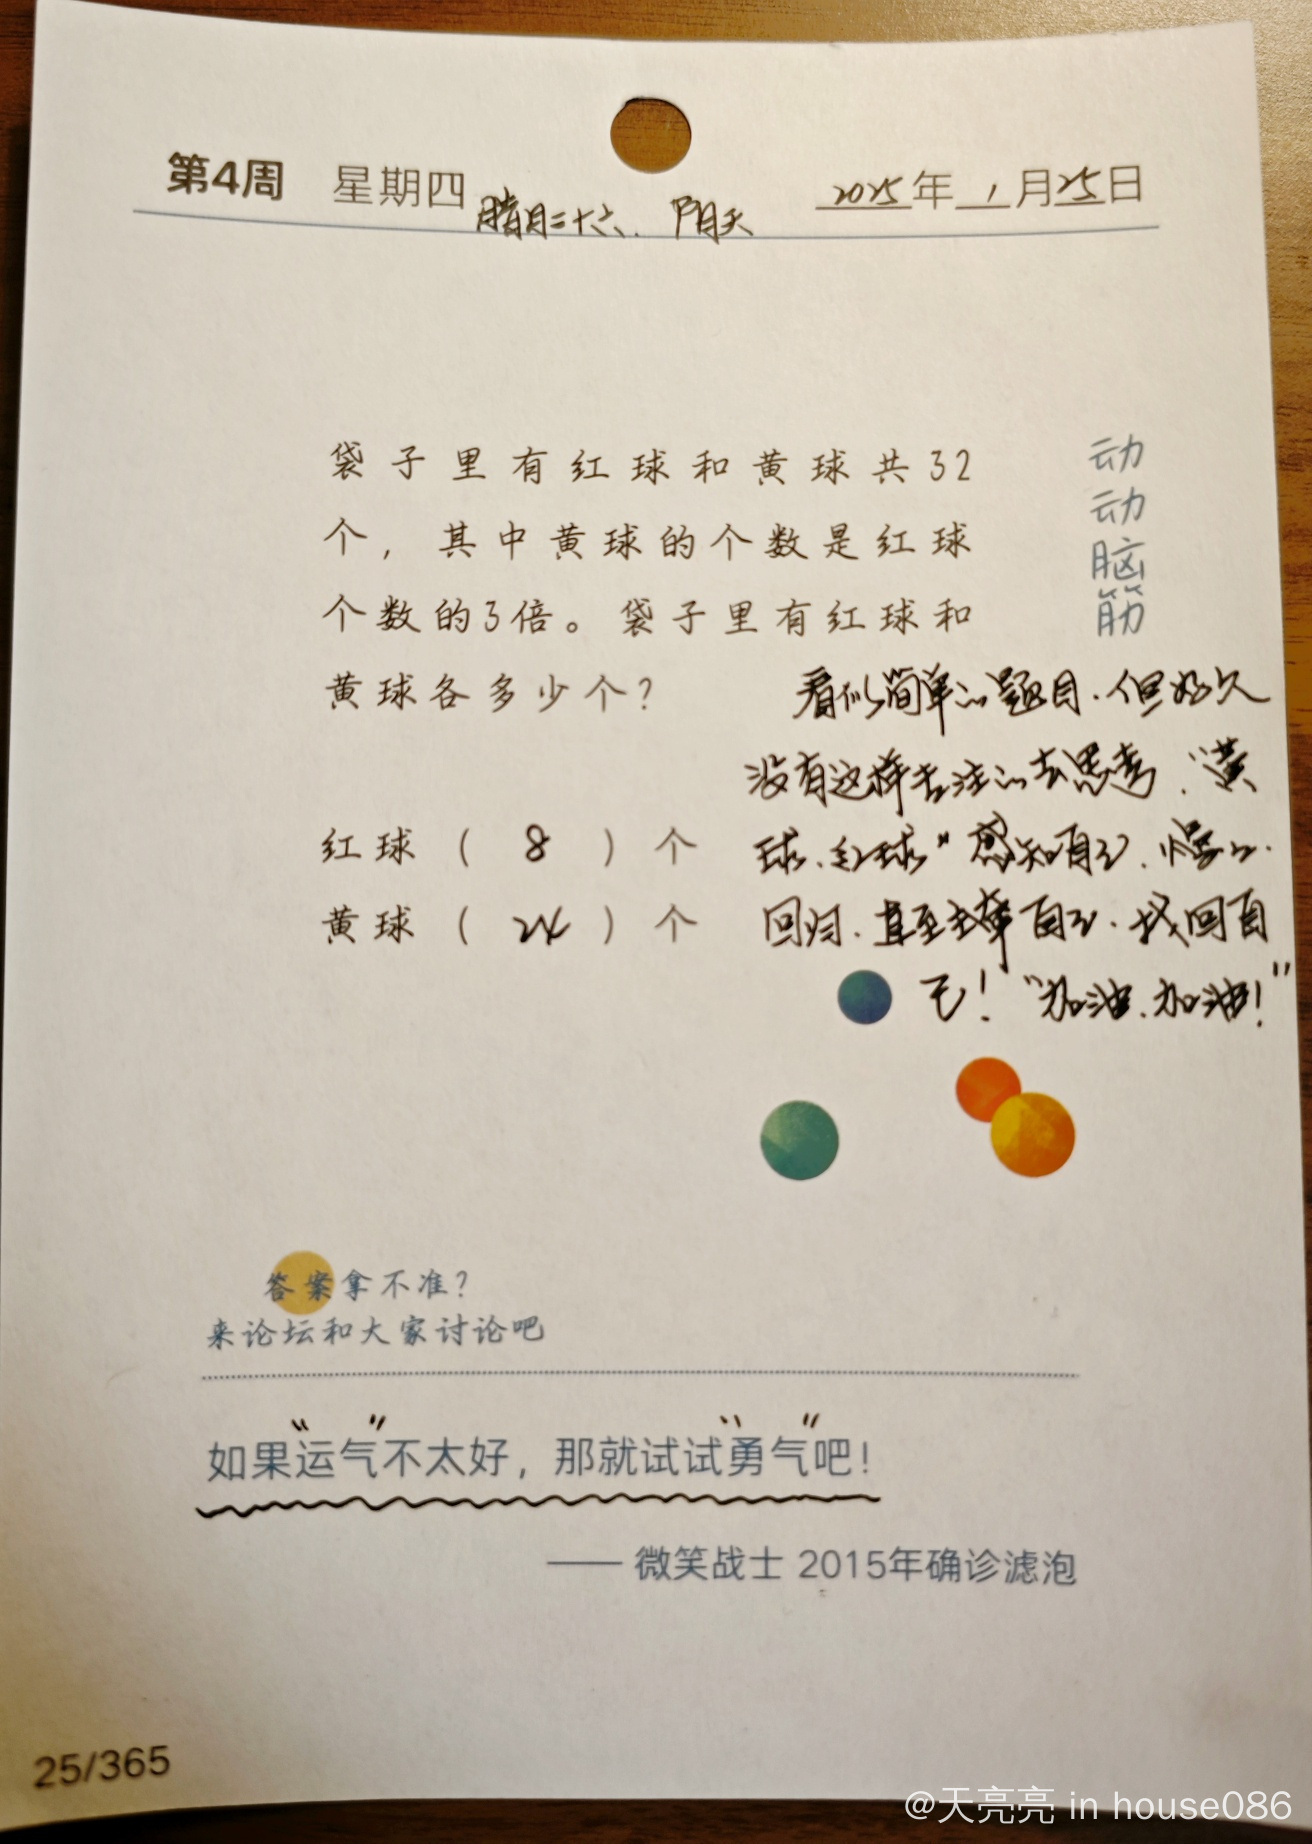 第4周 星期四 腊月二十六. 阴天 2025年1月25日
袋子里有红球和黄球共32
个，其中黄球的个数是红球
个数的3倍。袋子里有红球和
黄球各多少个?
动
动
脑
筋
看似简单的题目.但好久
没有这样专注的去思考."黄
球、红球"感知自己.慢慢.
回归.直至主宰自己.找回自
己！"加油.加油！"
红球 ( 8 ) 个
黄球 ( 24 ) 个
答案拿不准?
来论坛和大家讨论吧
如果"运气"不太好，那就试试"勇气"吧！
—— 微笑战士 2015年确诊滤泡
25/365
@天亮亮 in house086